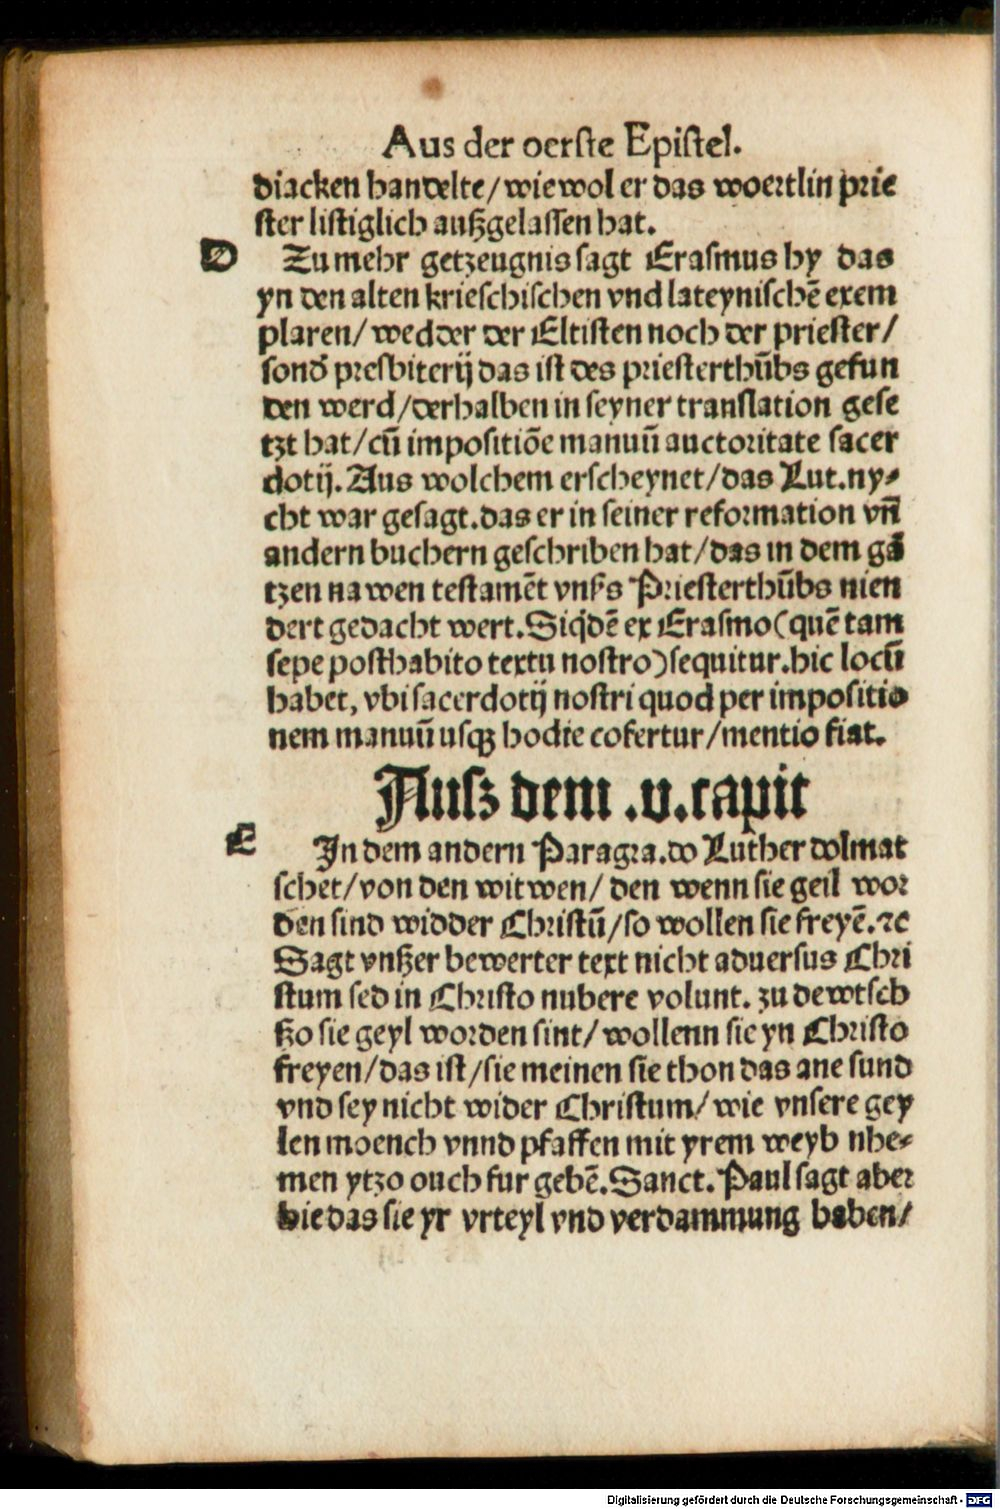 Aus der oerste Epistel.
diacken handelte/ wiewol er das woertlin prie
ster listiglich außgelassen hat.
D
Zu mehr getzeugnis sagt Erasmus hy das
yn den alten krieschischen vnd lateynischē exem
plaren/ wedder der Eltisten noch der priester/
sonđ presbiterij das ist des priesterthūbs gefun
den werd/ derhalben in seyner translation gese
tzt hat/ cū impositiōe manuū auctoritate sacer
dotij. Aus wolchem erscheynet/ das Lut. ny-
cht war gesagt. das er in seiner reformation vñ
andern buchern geschriben hat/ das in dem gā
tzen nawen testamēt vnß Priesterthūbs nien
dert gedacht wert. Siqđē ex Erasmo (quē tam
sepe posthabito textu nostro) sequitur. hic locū
habet, vbi sacerdotij nostri quod per impositio
nem manuū usqꝫ hodie cōfertur/ mentio fiat.
Ausz dem .v. capit
E
In dem andern Paragra. do Luther dolmat
schet/ von den witwen/ den wenn sie geil wor
den sind widder Christū/ so wollen sie freyē. ⁊c
Sagt vnßer bewerter text nicht aduersus Chri
stum sed in Christo nubere volunt. zu dewtsch
ßo sie geyl worden sint/ wollenn sie yn Christo
freyen/ das ist/ sie meinen sie thon das ane sund
vnd sey nicht wider Christum/ wie vnsere gey
len moench vnnd pfaffen mit yrem weyb nhe-
men ytzo ouch fur gebē. Sanct. Paul sagt aber
hie das sie yr vrteyl vnd verdammung haben/
Digitalisierung gefördert durch die Deutsche Forschungsgemeinschaft - DFG